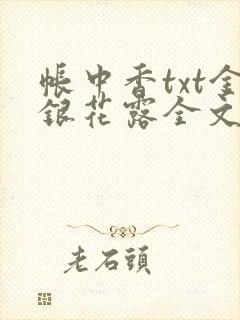 帳中香txt金
銀花露全文
老石頭